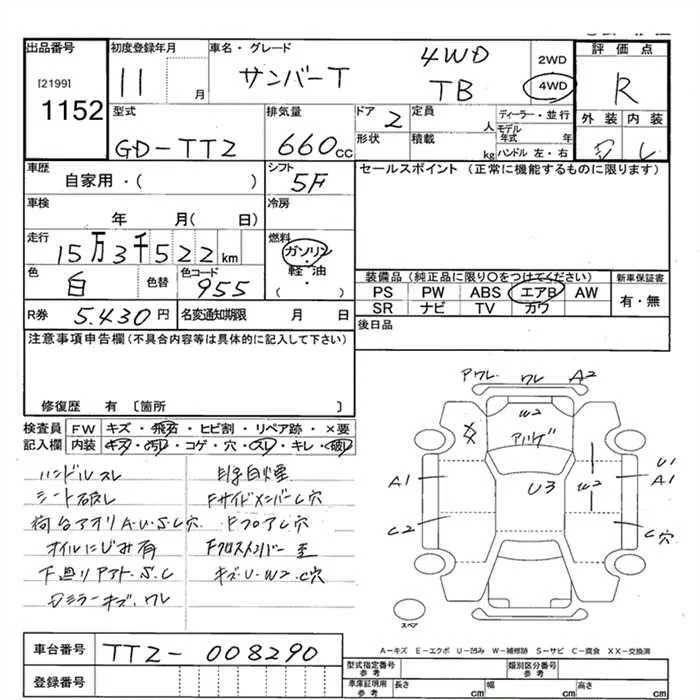 出品番号
[2199]
1152
初度登録年月
11 月
車名・グレード
サンバーT
4WD
TB
2WD
4WD
評価点
R
外装 内装
型式
GD-TT2
排気量
660 cc
ドア
2
定員
人
形状
積載
kg
ディーラー・並行
モデル
年式 年
ハンドル 左・右
車歴
自家用・( )
シフト
5F
セールスポイント (正常に機能するものに限ります)
車検
年 月( 日)
冷房
走行
15万3千522km
燃料
ガソリン
・
軽油
( )
色
白
色替
色コード
955
装備品 (純正品に限り○をつけてください)
PS PW ABS エアB AW
SR ナビ TV カワ
新車保証書
有・無
R券 5.430円
名変通知期限 月 日
後日品
注意事項申告欄 (不具合内容等は具体的に記入して下さい)
修復歴 有 〔箇所 〕
検査員
記入欄
FW キズ・飛石・ヒビ割・リペア跡・×要
内装 キズ・汚れ・コゲ・穴・スレ・キレ・破レ
ハンドルスレ
シート破レ
荷台アオリA.U.S.C穴
オイルにじみ有
下廻りアト.S.C
Dミラーキズ.ワレ
Fサイドメンバーし穴
Fフロアし穴
キズ.U.W2.C穴
アワレ ワレ A2
W2
XX
U3
A1
C2
W2
U1
A1
C穴
スペア
A-キズ E-エクボ U-凹み W-補修跡 S-サビ C-腐食 XX-交換済
車台番号
TT2-008290
登録番号
型式指定番号
参考
類別区分番号
参考
車庫証明用
参考
長さ cm
幅 cm
高さ cm